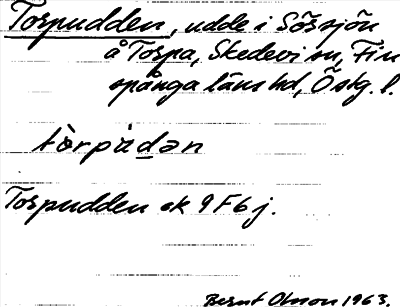 Torpudden, udde i Sörsjön
å Torpa, Skedevi sn, Fin
spånga läns hd, Östg. l.
tòrpàdən
Torpudden ek 9F6j.
Bernt Olsson 1963.